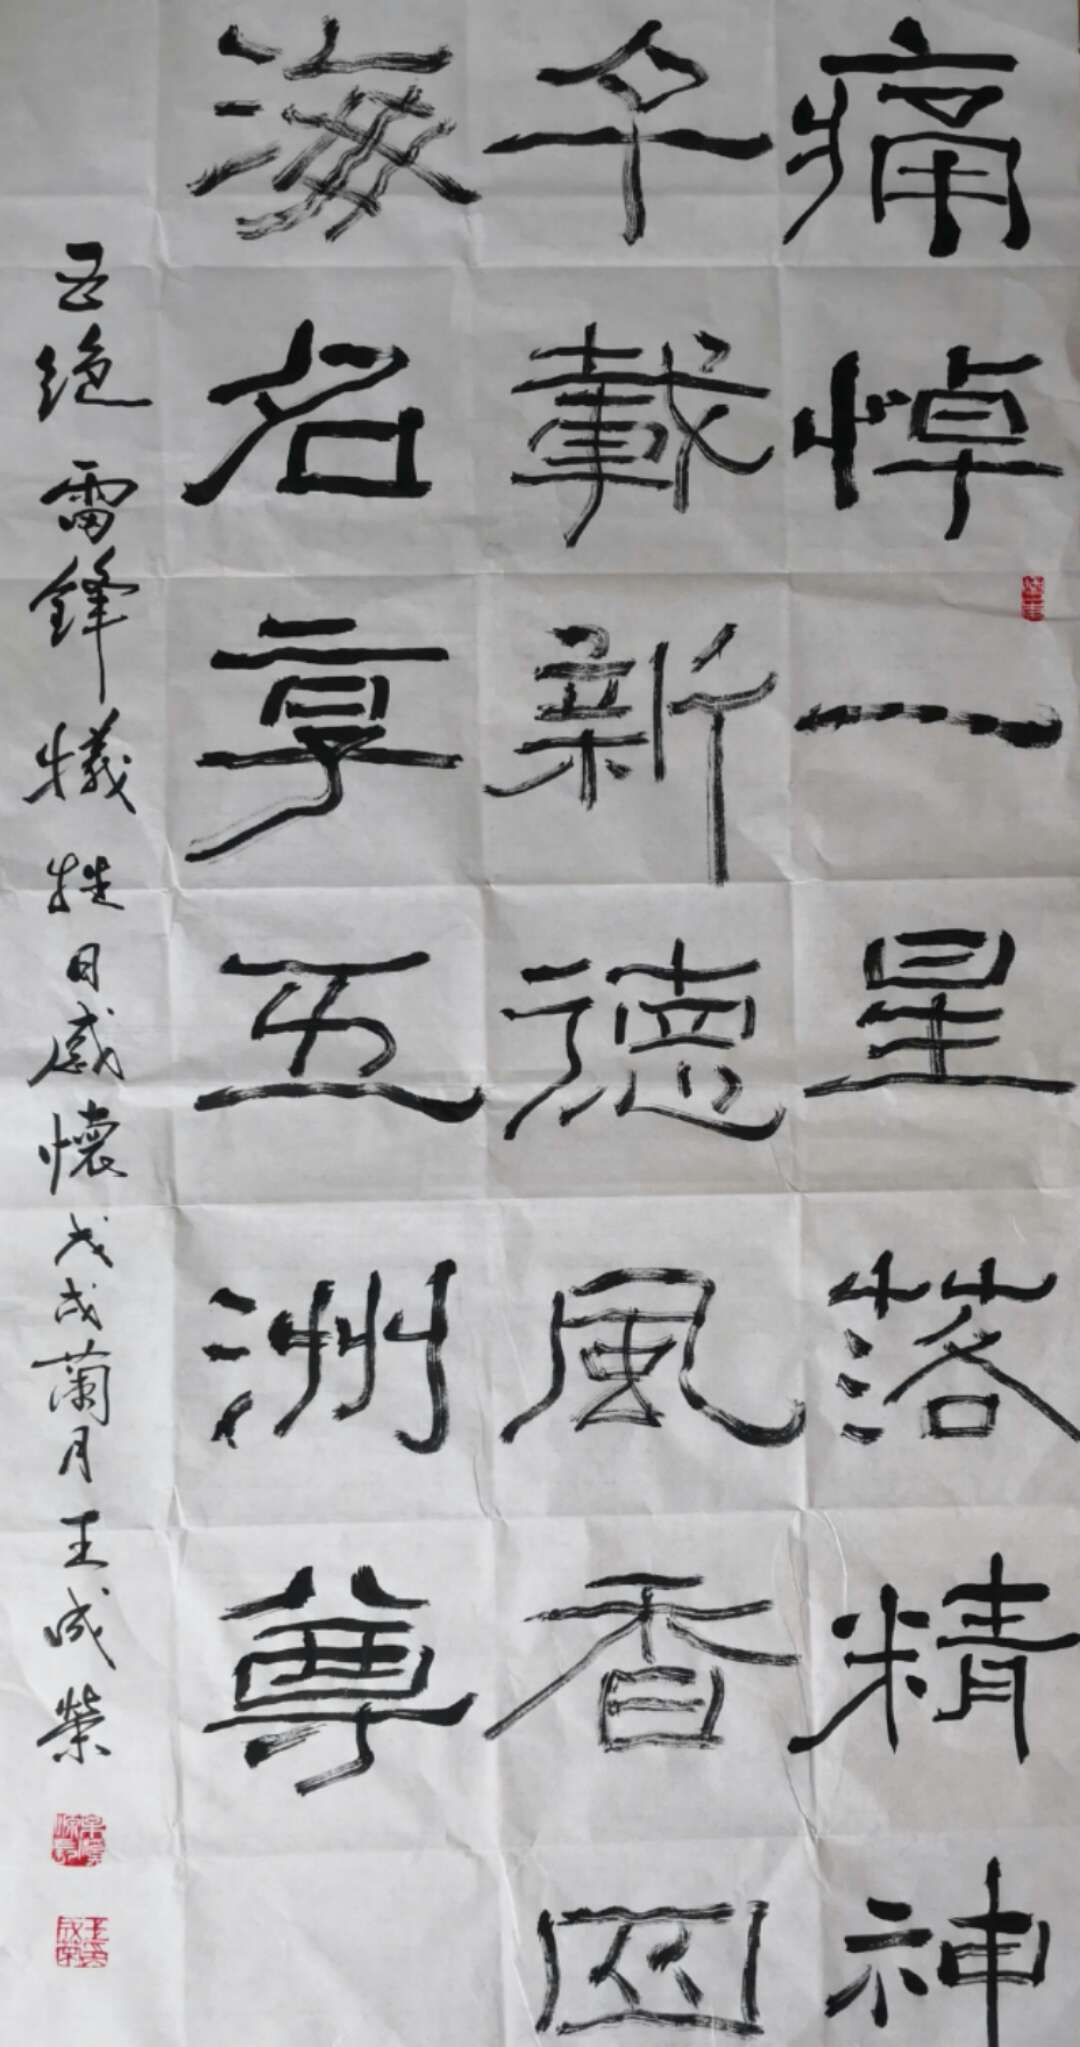 痛悼一星落精神
千載新德風香四
海名享五洲尊
五绝雷鋒犧牲日感懷戊戌蘭月王成榮